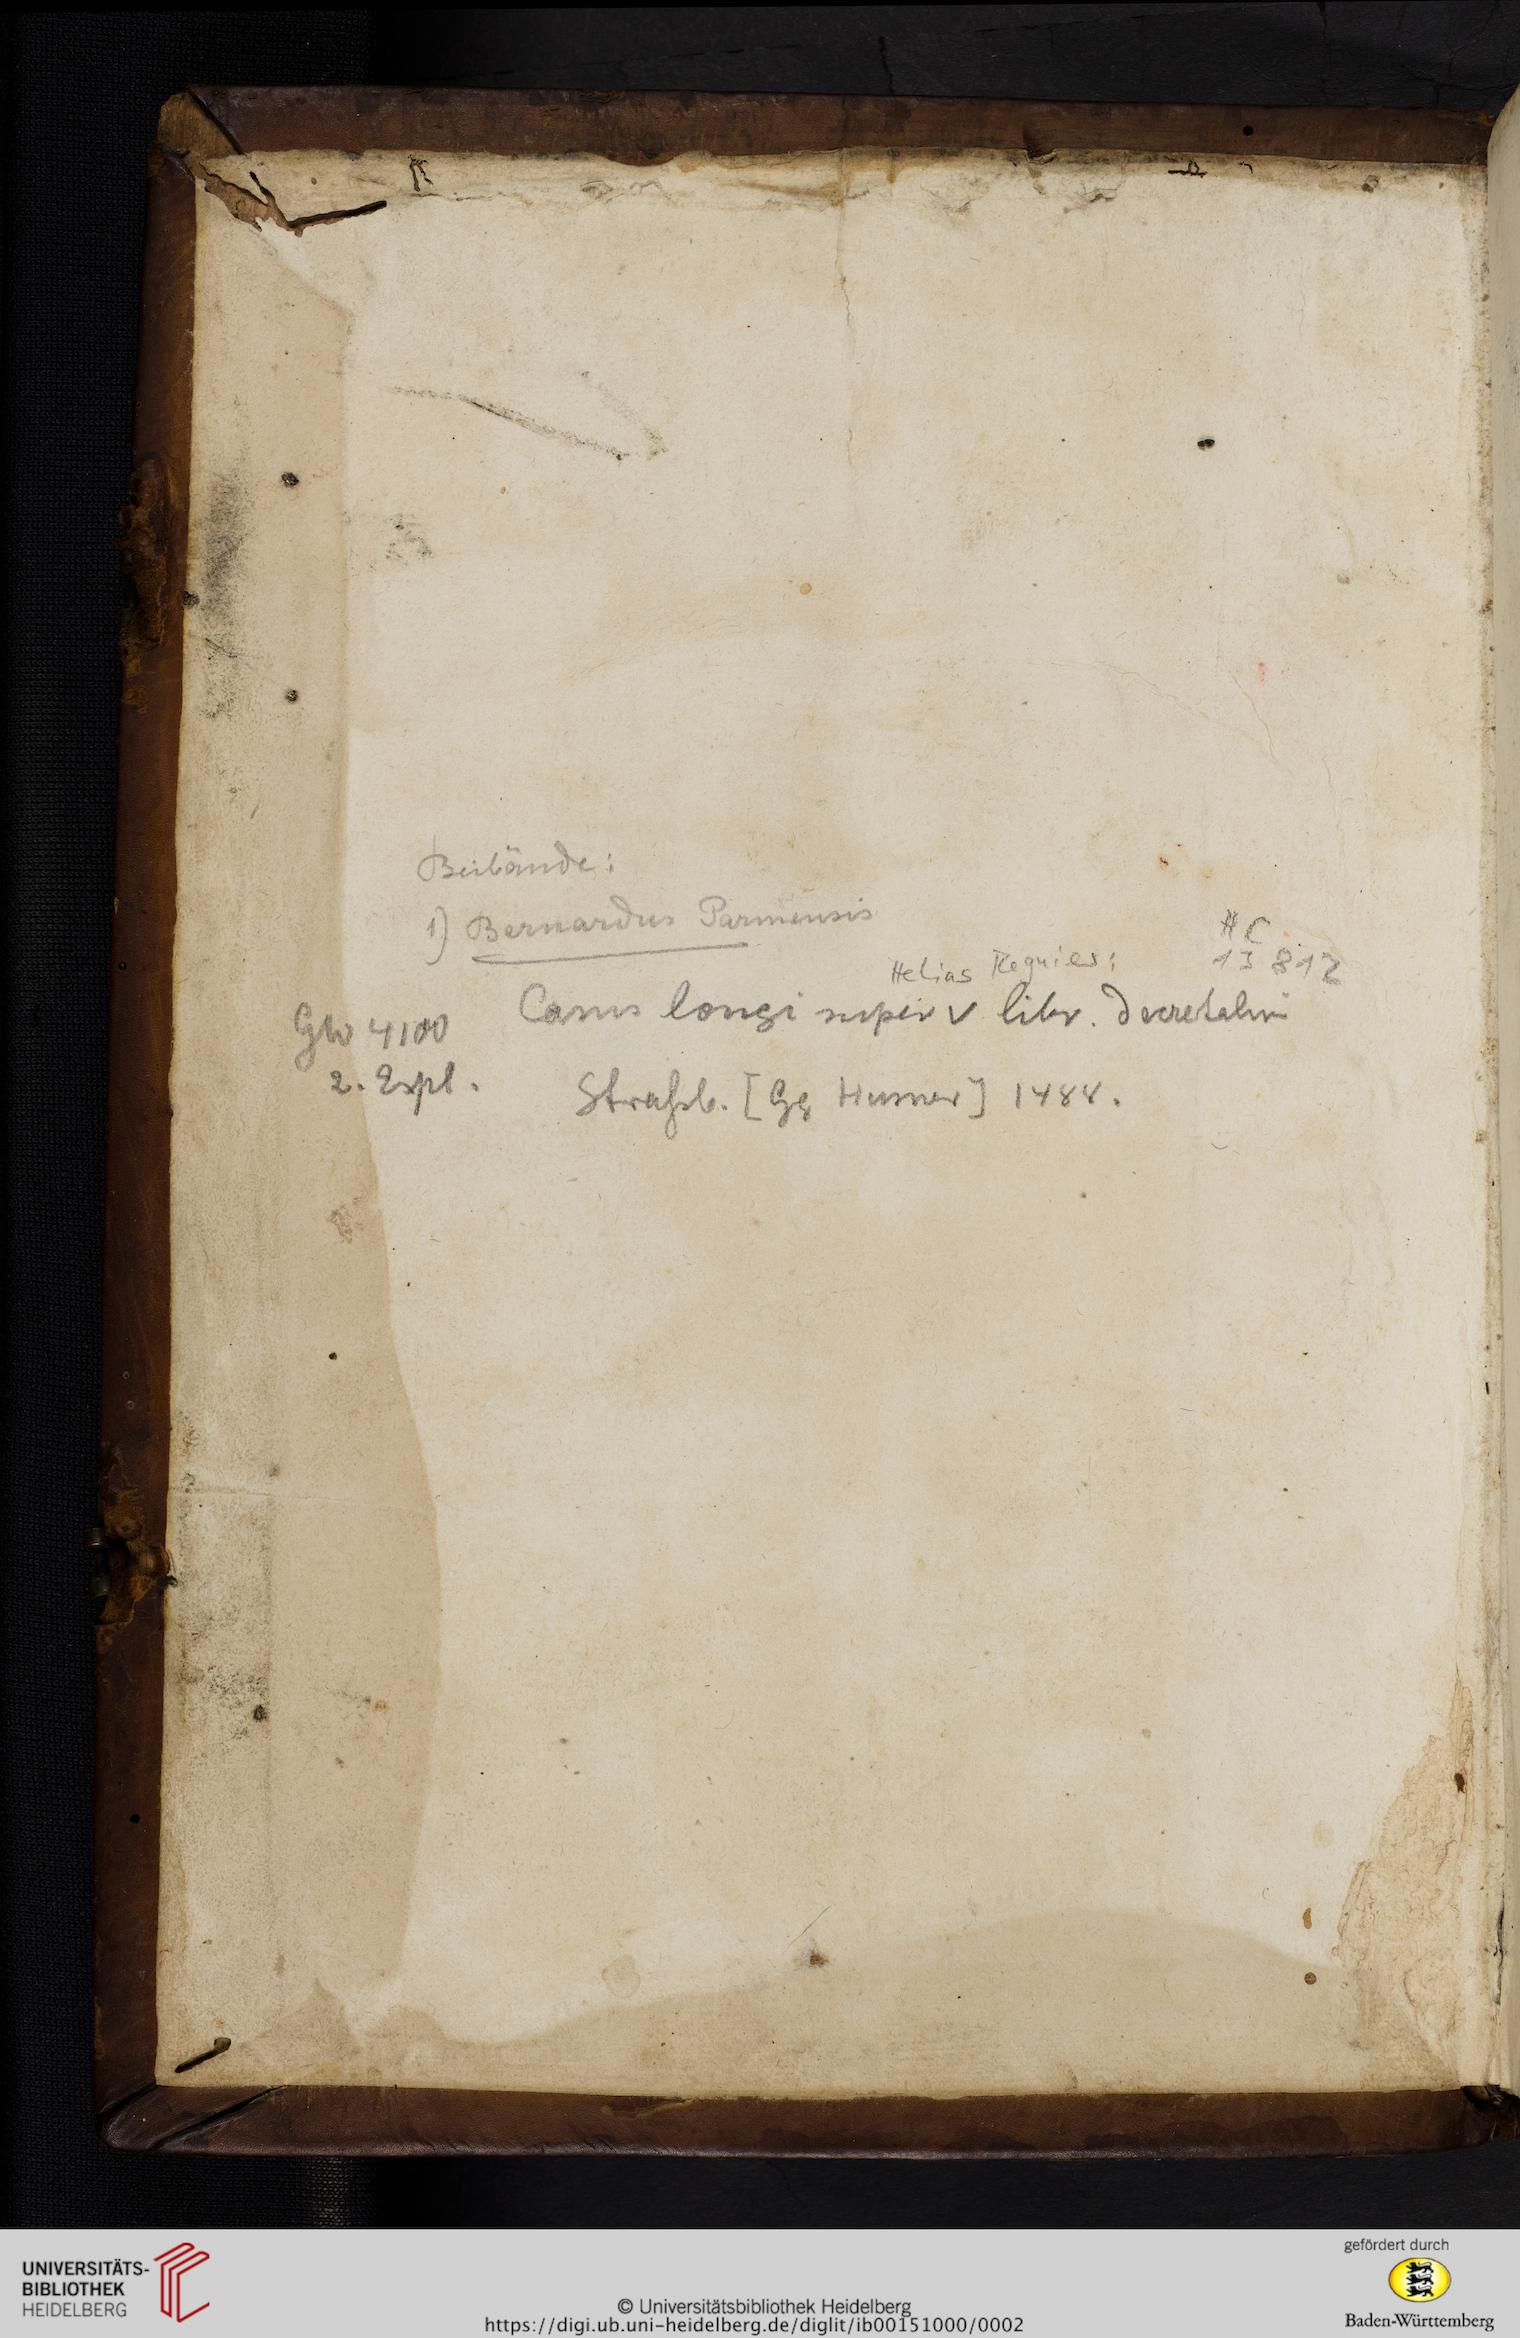 Beibände:
1) Bernardus Parmensis
HC
Helias Regnier: 13 812
GW 4100 Casus longi super V libr. decretalium
2. Expl. Straßb. [Gg Husner] 1488.
UNIVERSITÄTS-
BIBLIOTHEK
HEIDELBERG
© Universitätsbibliothek Heidelberg
https://digi.ub.uni-heidelberg.de/diglit/ib00151000/0002
gefördert durch
Baden-Württemberg